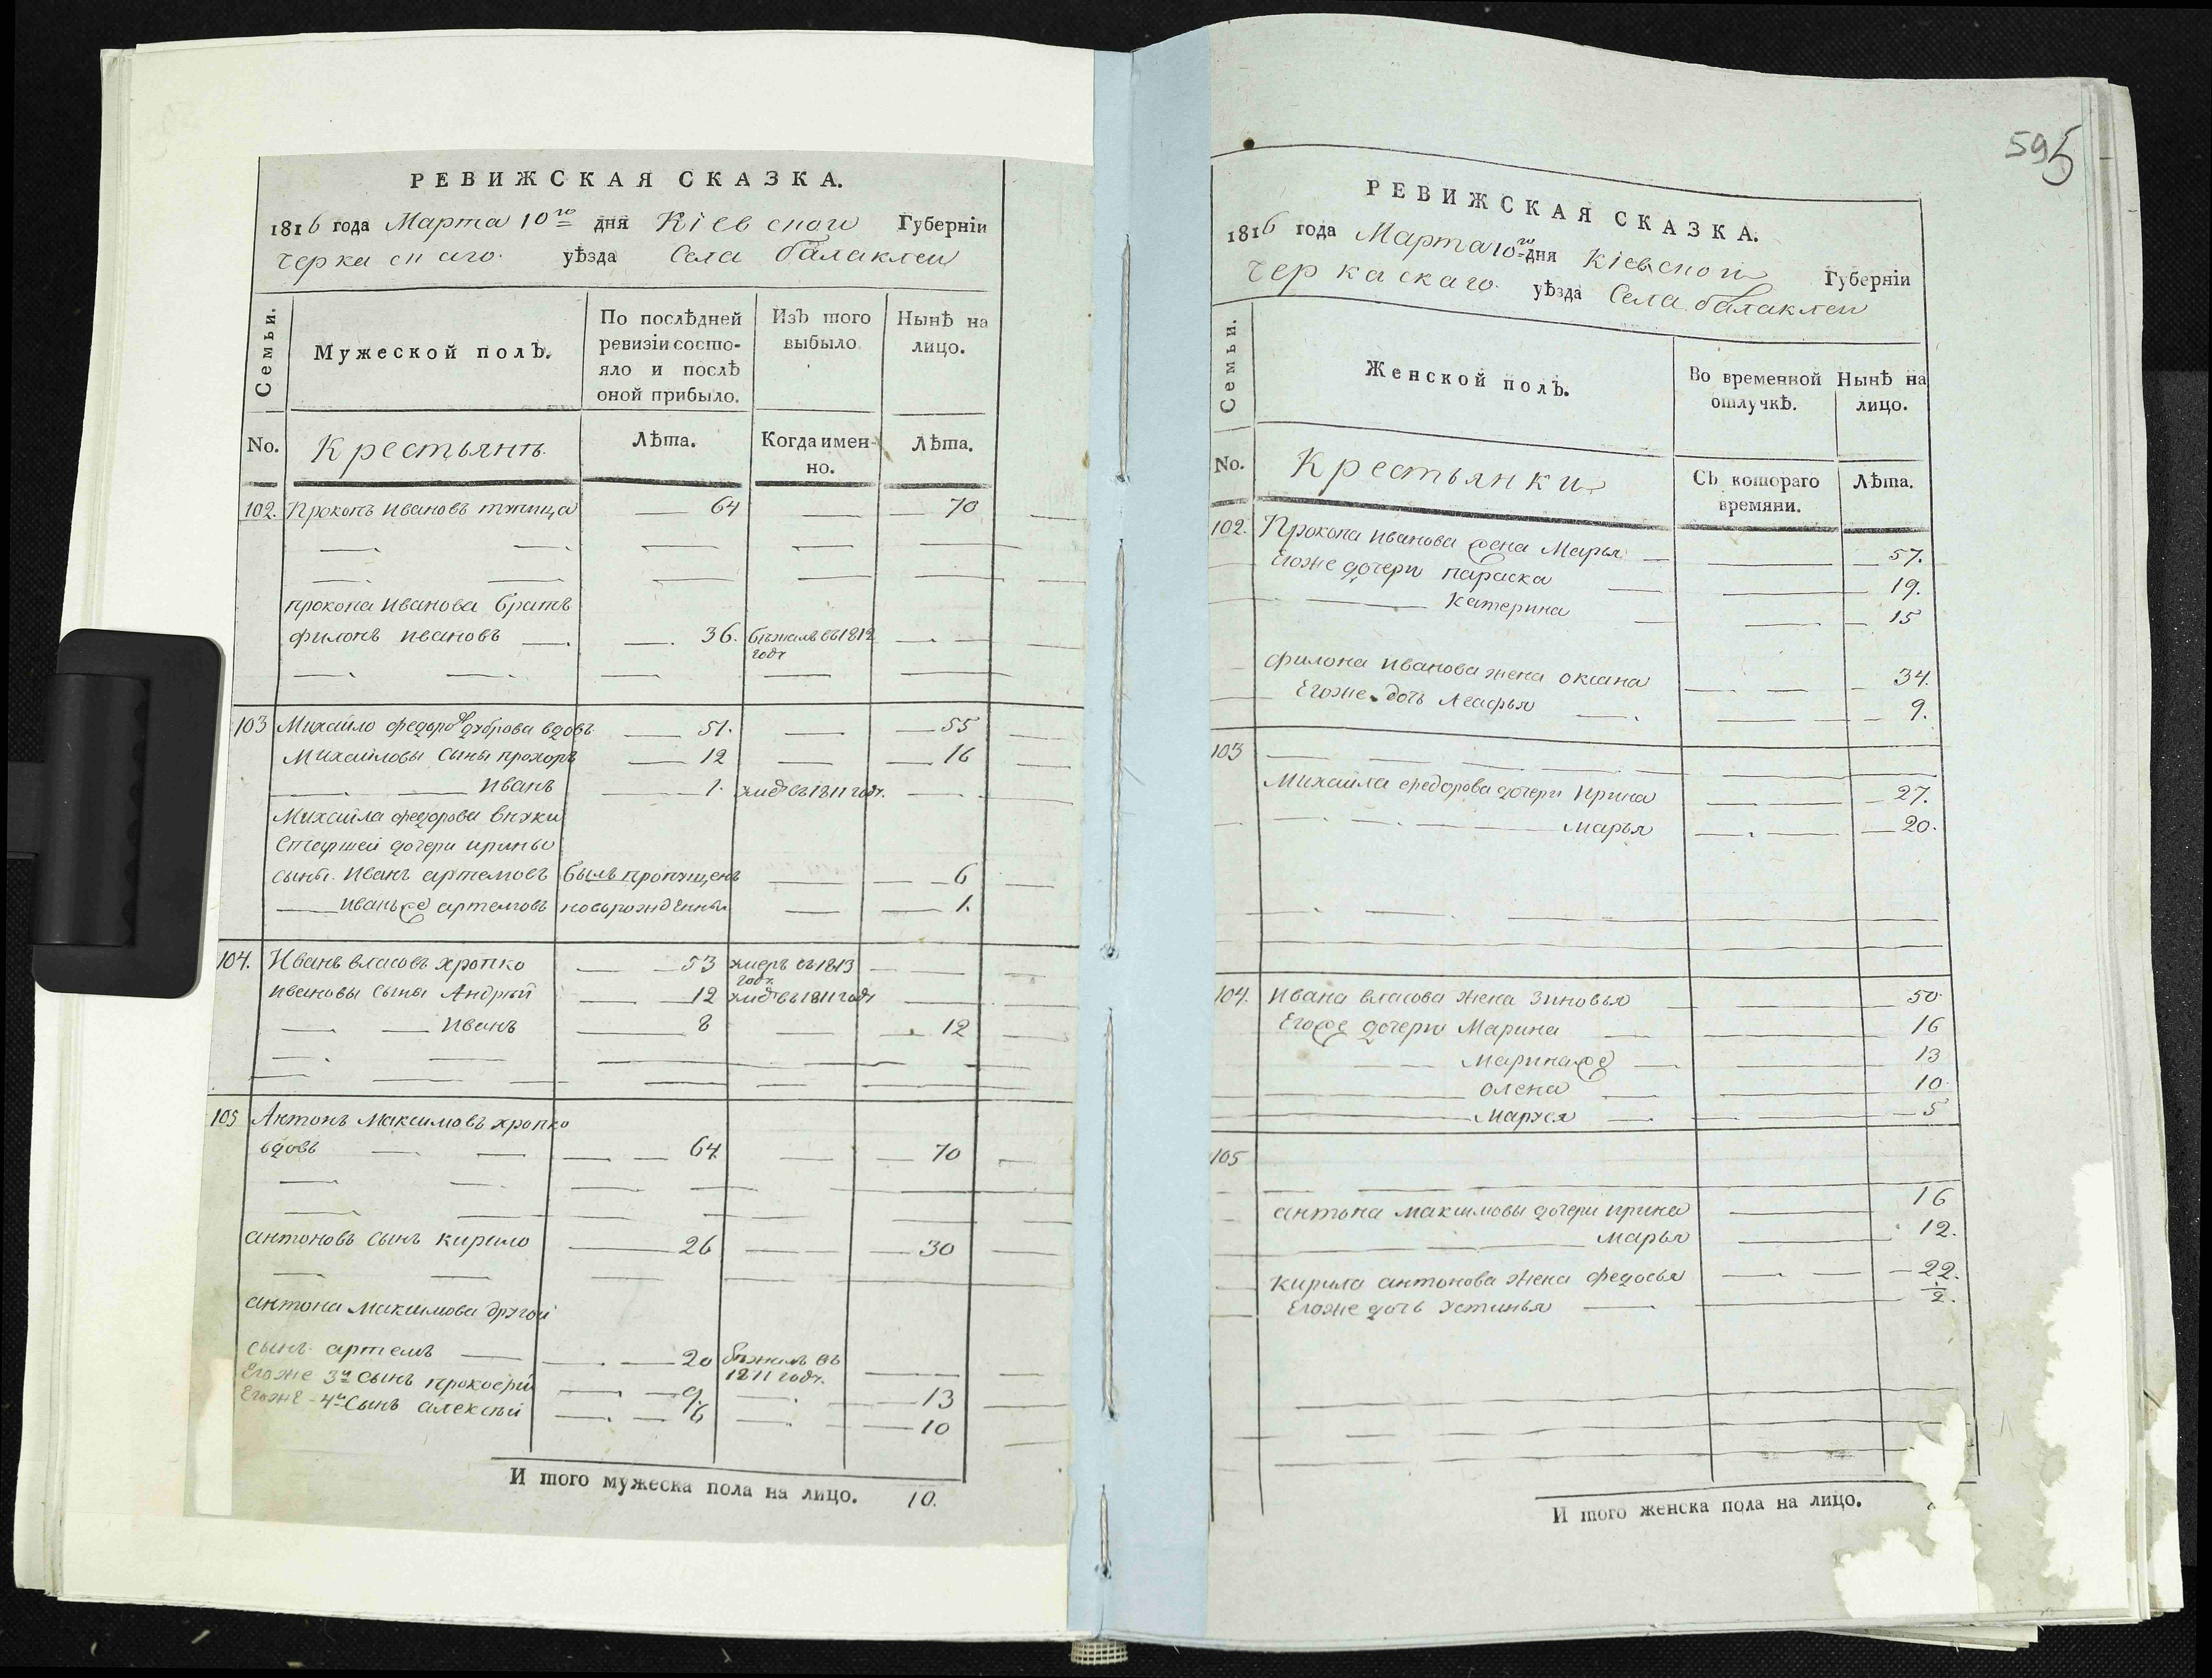 595
РЕВИЖСКАЯ СКАЗКА.
1816 года Марта 10го дня Кіевской Губерніи
черкаскаго. уѣзда Села балаклеи
Семьи.
Мужеской полъ.
По послѣдней ревизіи состояло и послѣ оной прибыло.
Изъ того выбыло
Нынѣ на лицо.
No.
Крестьянъ.
Лѣта.
Когда именно.
Лѣта.
102. Прокопъ Ивановъ 64 70
прокопа Иванова братъ
филонъ ивановъ 36. бѣжалъ въ 1812 году
103 Михайло федоров дуброва вдовъ 51. 55
Михайловы сыны прохоръ 12 16
Иванъ 1. въ 1811 году.
Михайла федорова внуки
Старшей дочери ирины
сыны. Иванъ артемовъ былъ пропущенъ 6
иванъ же артемовъ новорожденны 1.
104. Иванъ власовъ хропко 53 умеръ въ 1813 году.
ивановы сыны Андрѣй 12 въ 1811 году
Иванъ 8 12
105 Антонъ Максимовъ хропко
вдовъ 64. 70
антоновъ сынъ кирило 26 30
антона максимова другой
сынъ артемъ 20 бѣжалъ въ 1811 году.
Егоже 3й сынъ прокофій 9. 13
Егоже 4й сынъ алексѣй 6 10
И того мужеска пола на лицо. 10.
РЕВИЖСКАЯ СКАЗКА.
1816 года Марта 10го дня Кіевской Губерніи
черкаскаго. уѣзда Села балаклеи
Семьи.
Женской полъ.
Во временной отлучкѣ.
Нынѣ на лицо.
No.
Крестьянки
Съ котораго времяни.
Лѣта.
102. Прокопа Иванова жена Марья 57.
Егоже дочери параска 19.
катерина 15
филона иванова жена оксана 34.
Егоже дочь 9.
103
Михайла федорова дочери Ирина 27.
марья 20.
104. Ивана власова жена зиновья 50
Егоже дочери Марина 16
Марина же 13
олена 10
Маруся 5
105
антона максимовы дочери ирина 16
марья 12.
кирила антонова жена федосья 22.
Егоже дочь устинья 1/2.
И того женска пола на лицо.